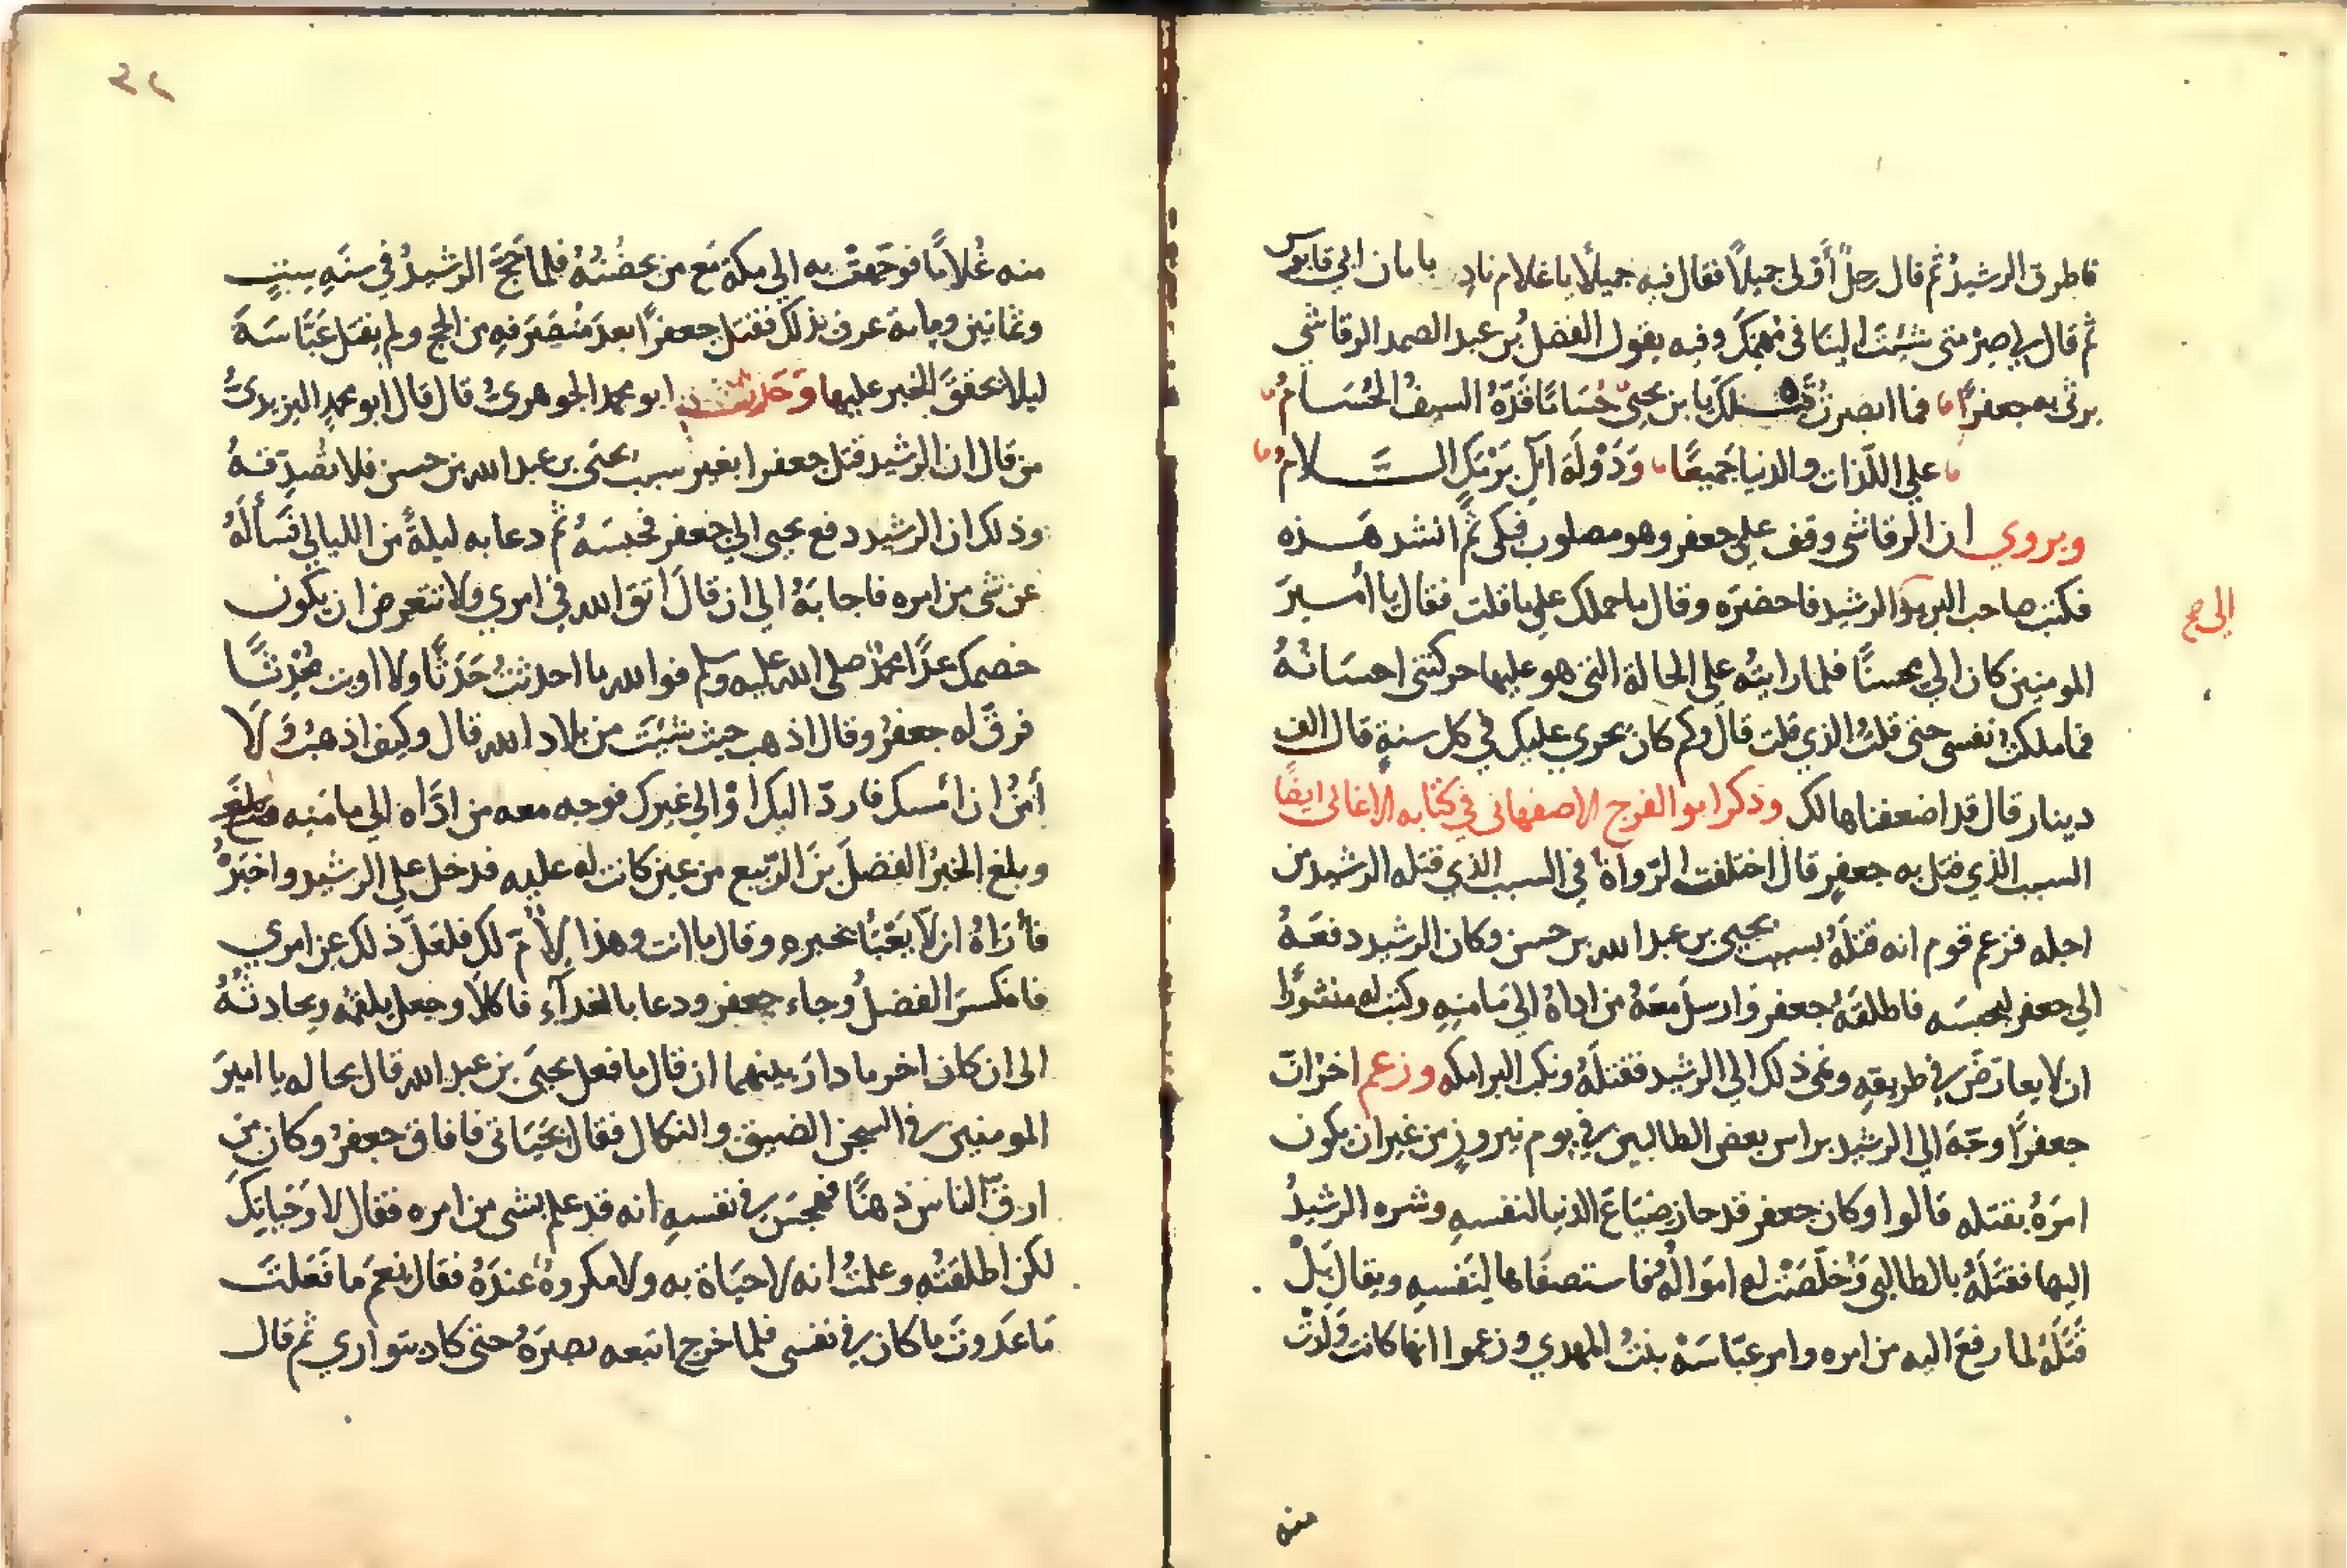 فاطرق الرشيدُ ثم قال رجلٌ أَوْلى جميلاً فقال فيه جميلاً يا غلام نادِ بامان ابي قابوس
ثم قال يا صبرُ متى شئتَ الينا في مُهمكَ وفيه يقول الفضلُ بن عبد الصمد الرقاشي
يرثى به جعفراً فما ابصرتُ قبلكَ يا بن يحيىٰ حُسَامًا قَدَّهُ السيفُ الحُسَامُ
على اللّذات والدنيا جَميعًا وَدَوْلَةَ آلِ بَرْمَكٍ السَّلامُ
ويروي ان الرقاشي وقف على جعفر وهو مصلوب فبكى ثم انشد هذه
فكتب صاحب البريد الرشيد فاحضره وقال ما حملك على ما قلت فقال يا أمير
الى صح
المومنين كان الي محسنًا فلما رايتُه على الحالة التي هو عليها حركنى احسَانُهُ
فما ملكتُ نفسى حتى قلتُ الذي قلت قال وكم كان يجري عليك في كل سنةٍ قال الف
دينار قال قد اضعفناها لك وذكر ابو الفرج الاصفهانى في كتابه الاغانى ايضًا
السبب الذي قتل به جعفرٍ قال اختلفت الرّواة في السبب الذي قتله الرشيد من
اجله فزعم قوم انه قتلَهُ بسبب يحيى بن عبد الله بن حسن وكان الرشيد دفعَهُ
الي جعفر ليحبسَه فاطلقَهُ جعفر وارسلَ معَهُ من اداهُ الى مَامنِهِ وكتب له منشورًا
ان لا يعارَضَ في طريقهِ ونمى ذلك الي الرشيد فقتلهُ ونكب البرامكه وزعم اخرُ انّ
جعفراً وجّهَ الي الرشيد براس بعض الطالبين في يوم نيروزٍ من غير ان يكون
امرَهُ بقتله قالوا وكان جعفر قد حاز ضِيَاعَ الدنيا لنفسهِ وشره الرشيدُ
اليها فقتلَهُ بالطالبي وَخَلَصَتْ له اموالُهُ فاستصفاها لنَفسهِ ويقال بَلْ
قَتَلَهُ لما رفعَ اليه من امره وامر عبّاسَهْ بنتُ المهدي وزعموا انها كانت وَلَدتْ
منه

٤٢
منه غُلامًا فوجّهتْ به الى مكة مَع من يحضُنُهُ فلما حَجَّ الرشيدُ في سنَهِ ستٍ
وثمانين وماية عرف بذلك فقتل جعفراً بعدَ مُنصَرَفِهِ من الحج ولم يقتل عَبّاسَةَ
ليلا يحققَ الخبر عليها وَحَدّثنى ابو محمد الجوهريُّ قال قال ابو محمدٍ اليزيديُّ
من قال ان الرشيد قتل جعفرا بغير سبب يحيى بن عبد الله بن حسن فلا تُصَدّقهُ
وذلك ان الرشيد دفع يحيى الي جعفر فحبسَهُ ثم دعا به ليلةً من الليالي فَسَألَهُ
عن شى من امره فاجابَهُ الى ان قالَ اتقِ الله في امري ولا تتعرض ان يكون
خصمك غدًا محمدٌ صلى الله عليه وسلم فوالله ما احدثتُ حَدَثًا ولا اويت مُحْدِثًا
فرقّ له جعفرُ وقال اذهب حيث شئتَ من بلاد الله قال وكيف اذهبُ وَلَا
أمنُ ان اُمسك فاردّ اليك اوْ الي غيرك فوجه معه من ادَّاه الي مامَنِه
وبلغ الخبرُ الفضلَ بنَ الرّبيع من عين كانت له عليه فدخل على الرشيد واخبَرهُ
فأَرَاهُ ان لا يَعْبَأ بخبرهِ وقال ما انت وهذا لا أُمّ لك فلعَلّ ذلك عن امري
فانكسرَ الفضلُ وجاء جعفر ودعا بالغدآءِ فاكلا وجعل يلقمُه ويحادثُهُ
الى ان كان اخر ما دارَ بينهما ان قال ما فعل يحيىَ بن عبد الله قال بحاله يا اميرَ
المومنين في السجن الضيق والنكال فقال بحَيَاتى فافاقَ جعفرُ وكان مِن
ارقّ الناس ذهنًا فهجسَ في نفسهِ انه قد علم بشى من امره فقال لا وَحَيَاتِكَ
لكن اطلقتُه وعلمتُ انه لا حيَاة به ولا مكروهُ عندَهُ فقال نعمَ ما فَعَلتَ
مَا عَدَوتَ ما كان في نفسى فلما خرج اتبعه بصرَهُ حتى كاد يتواري ثم قال